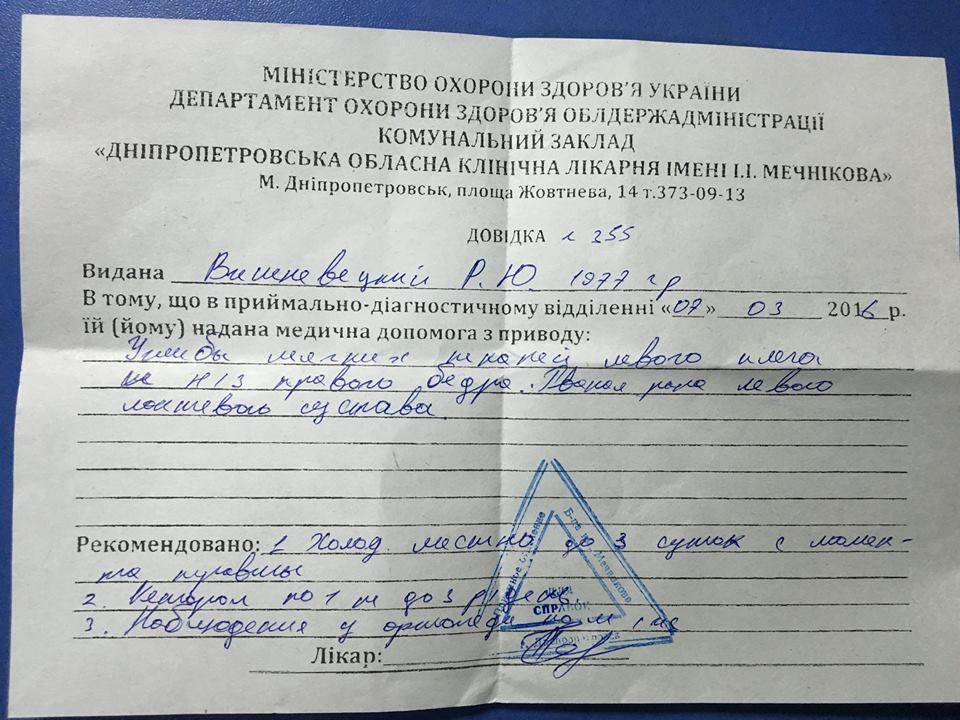 МІНІСТЕРСТВО ОХОРОНИ ЗДОРОВ'Я УКРАЇНИ
ДЕПАРТАМЕНТ ОХОРОНИ ЗДОРОВ'Я ОБЛДЕРЖАДМІНІСТРАЦІЇ
КОМУНАЛЬНИЙ ЗАКЛАД
«ДНІПРОПЕТРОВСЬКА ОБЛАСНА КЛІНІЧНА ЛІКАРНЯ ІМЕНІ І.І. МЕЧНІКОВА»
М. Дніпропетровськ, площа Жовтнева, 14 т.373-09-13
ДОВІДКА 355
Видана Вишневецкий Р.Ю. 1977 гр
В тому, що в приймально-діагностичному відділенні «07» 03 2016 р.
їй (йому) надана медична допомога з приводу:
Ушибы мягких тканей левого плеча
н/3 правого бедра. Рваная рана левого
локтевого сустава
Рекомендовано: 1 Холод местно до 3 суток с момен-
та травмы
2. Кеторол по 1 т до 3 р/
3. Наблюдение у по м/ж
Лікар:
Приемное отделение
Б-ца им. Мечникова
ДЛЯ
СПРАВОК